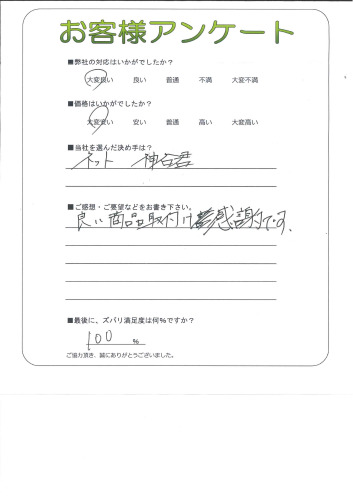 お客様アンケート
■弊社の対応はいかがでしたか?
大変良い 良い 普通 不満 大変不満
■価格はいかがでしたか?
大変安い 安い 普通 高い 大変高い
■当社を選んだ決め手は?
ネット 神谷君
■ご感想・ご要望などをお書き下さい。
良い商品取付け 感謝です。
■最後に、ズバリ満足度は何%ですか?
100 %
ご協力頂き、誠にありがとうございました。